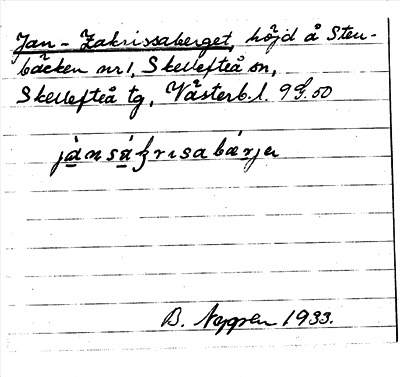 Jan-Zakrissaberget, höjd å Sten-
bäcken nr 1, Skellefteå sn,
Skellefteå tg, Västerb.l. 9 S. 50
jànsákrisabárjeɩ
B. Nygren 1933.